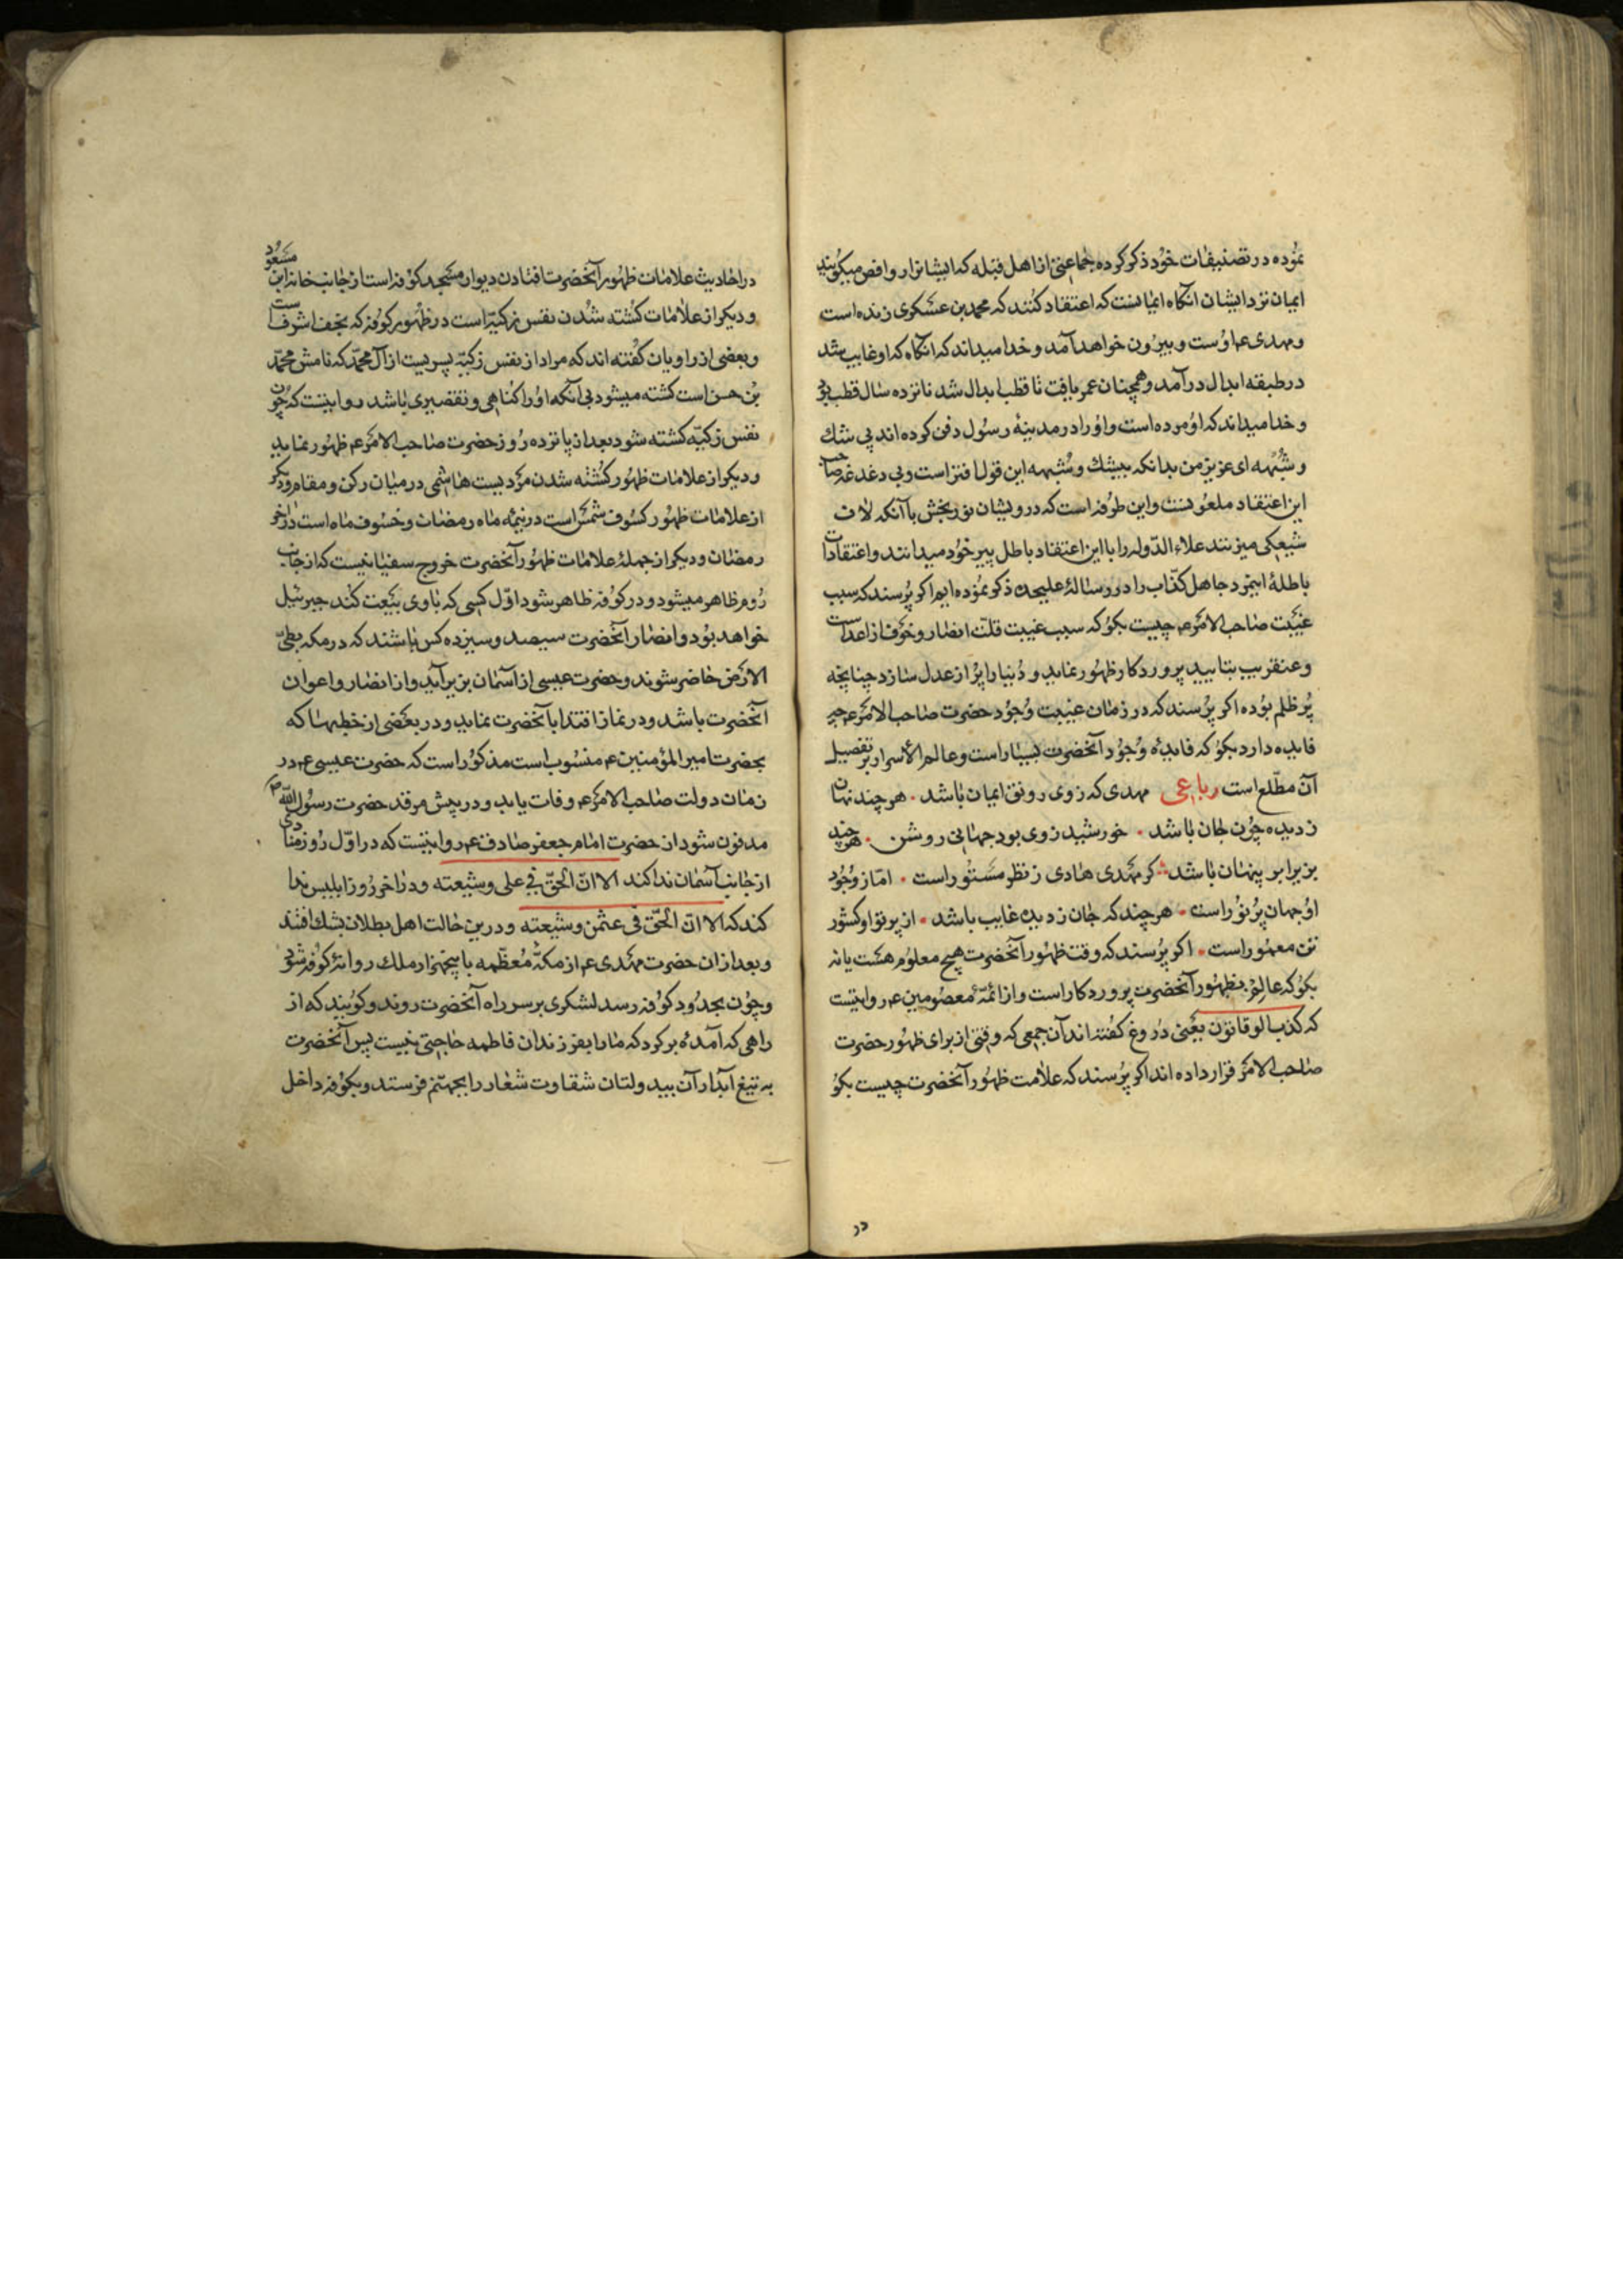 نموده در تصنیفات خود ذکر کرده جماعتی از اهل قبله که ایشانرا روافض میگویند
ایمان نزد ایشان آنکاه ایمانست که اعتقاد کنند که محمد بن عسکری زنده است
و مهدی عم اوست و بیرون خواهد آمد و خدا میداند که آنکاه که او غایب شد
در طبقه ابدال درآمد و همچنان عمر یافت تا قطب ابدال شد نانزده سال قطب بود
و خدا میداند که او مرده است و او را در مدینهٔ رسول دفن کرده اند بی شک
و شبهه ای عزیز من بدانکه بیشک و شبهه این قول افتراست و بی دغدغه صاحب
این اعتقاد ملعونست و این طرفه است که درویشان نوربخش با آنکه لاف
شیعکی میزنند علاء الدوله را با این اعتقاد باطل پیر خود میدانند و اعتقادات
باطلهٔ اینمرد جاهل کذاب را در رسالهٔ علیحده ذکر نموده ایم اکر پرسند که سبب
غیبت صاحب الامر عم چیست بکو که سبب غیبت قلت انصار و خوف از اعداست
و عنقریب بتایید پروردکار ظهور نماید و دنیا را پر از عدل سازد چنانچه
پر ظلم بوده اکر پرسند که در زمان غیبت وجود حضرت صاحب الامر عم چه
فایده دارد بکو که فایدهٔ وجود آنحضرت بسیار است و عالم الاسرار بر تفصیل
آن مطلع است رباعی مهدی که زوی رونق ایمان باشد هر چند نهان
ز دیده چون جان باشد خورشید زوی بود جهانی روشن هر چند
بزیر ابر پنهان باشد کر مهدی هادی ز نظر مستور است اما ز وجود
او جهان پر نور است هر چند که جان ز دیده غایب باشد از پرتو او کشور
تن معمور است اکر پرسند که وقت ظهور آنحضرت هیچ معلوم هست یا نه
بکو که عالم بظهور آنحضرت پروردکار است و از ائمهٔ معصومین عم روایتست
که کذب الوقاتون یعنی دروغ کفته اند آن جمعی که وقتی از برای ظهور حضرت
صاحب الامر قرار داده اند اکر پرسند که علامت ظهور آنحضرت چیست بکو
در
در احادیث علامات ظهور آنحضرت افتادن دیوار مسجد کوفه است از جانب خانه ابن مسعود
و دیکر از علامات کشته شدن نفس زکیه است در ظهور کوفه که نجف اشرف است
و بعضی از راویان کفته اند که مراد از نفس زکیه پسریست از آل محمد که نامش محمد
بن حسن است کشته میشود بی آنکه او را کناهی و تقصیری باشد روایتست که چون
نفس زکیه کشته شود بعد از پانزده روز حضرت صاحب الامر عم ظهور نماید
و دیکر از علامات ظهور کشته شدن مردیست هاشمی در میان رکن و مقام و دیکر
از علامات ظهور کسوف شمس است در نیمه ماه رمضان و خسوف ماه است در آخر
رمضان و دیکر از جملهٔ علامات ظهور آنحضرت خروج سفیانیست که از جانب
روم ظاهر میشود و در کوفه ظاهر شود اول کسی که باوی بیعت کند جبرئیل
خواهد بود و انصار آنحضرت سیصد و سیزده کس باشند که در مکه بطی
الارض حاضر شوند و حضرت عیسی از آسمان بزیر آید و از انصار و اعوان
آنحضرت باشد و در نماز اقتدا بآنحضرت نماید و در بعضی از خطبهها که
بحضرت امیر المؤمنین عم منسوب است مذکور است که حضرت عیسی عم در
زمان دولت صاحب الامر عم وفات یابد و در پیش مرقد حضرت رسول الله ص
مدفون شود از حضرت امام جعفر صادق عم روایتست که در اول روز منادی
از جانب آسمان ندا کند الا ان الحق فی علی و شیعته و در آخر روز ابلیس ندا
کند که الا ان الحق فی عثمن و شیعته و درین حالت اهل بطلان بشک افتند
و بعد از ان حضرت مهدی عم از مکهٔ معظمه با پنجهزار ملک روانهٔ کوفه شود
و چون بحدود کوفه رسد لشکری بر سر راه آنحضرت روند و کویند که از
راهی که آمدهٔ برکرد که ما را بفرزندان فاطمه حاجتی نیست پس آنحضرت
به تیغ آبدار آن بیدولتان شقاوت شعار را بجهنم فرستد و بکوفه داخل